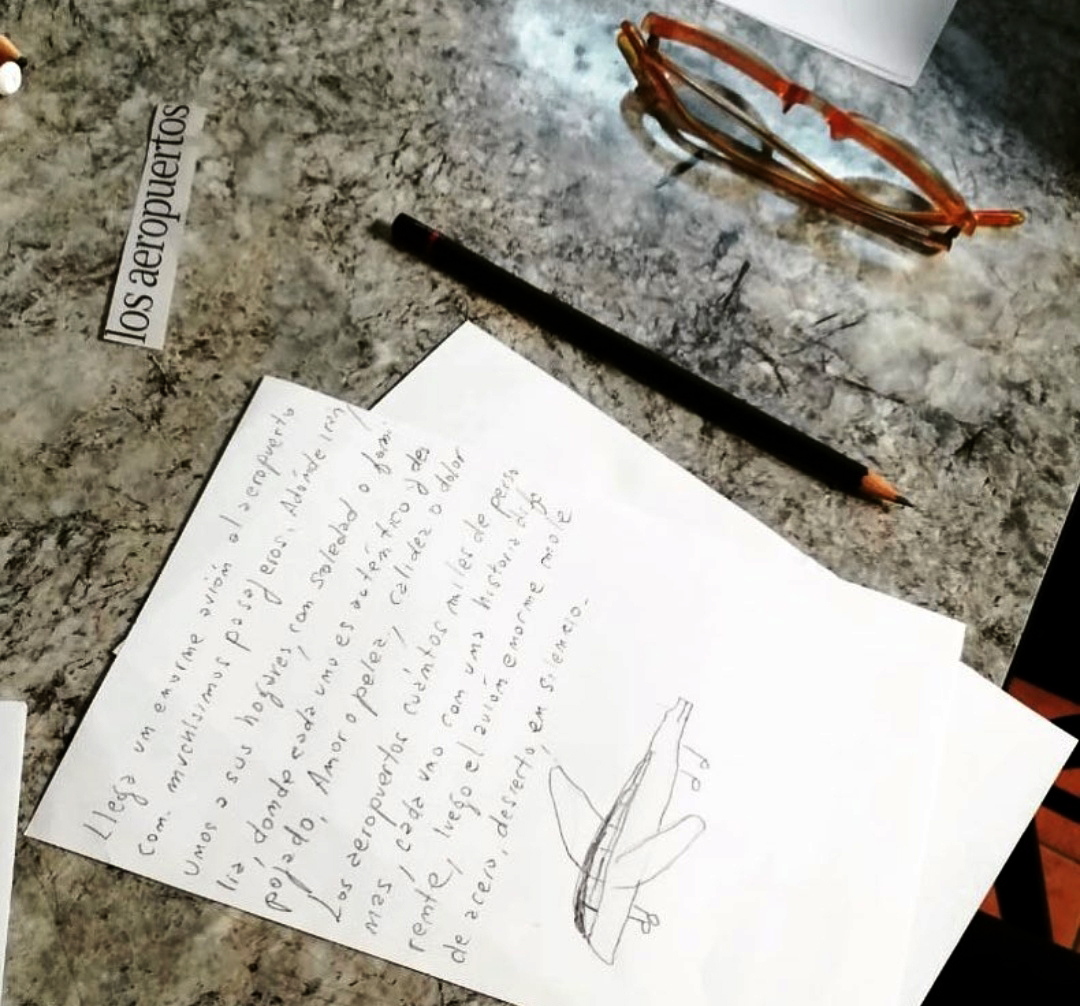 los aeropuertos
Llega un enorme avión al aeropuerto
con muchísimos pasajeros. Adónde irán
unos a sus hogares, con soledad o fami
lia, donde cada uno es auténtico y des
pojado. Amor o pelea, calidez o dolor
Los aeropuertos cuántos miles de perso
nas, cada uno con una historia dife
rente, luego el avión enorme mole
de acero, desierto, en silencio.